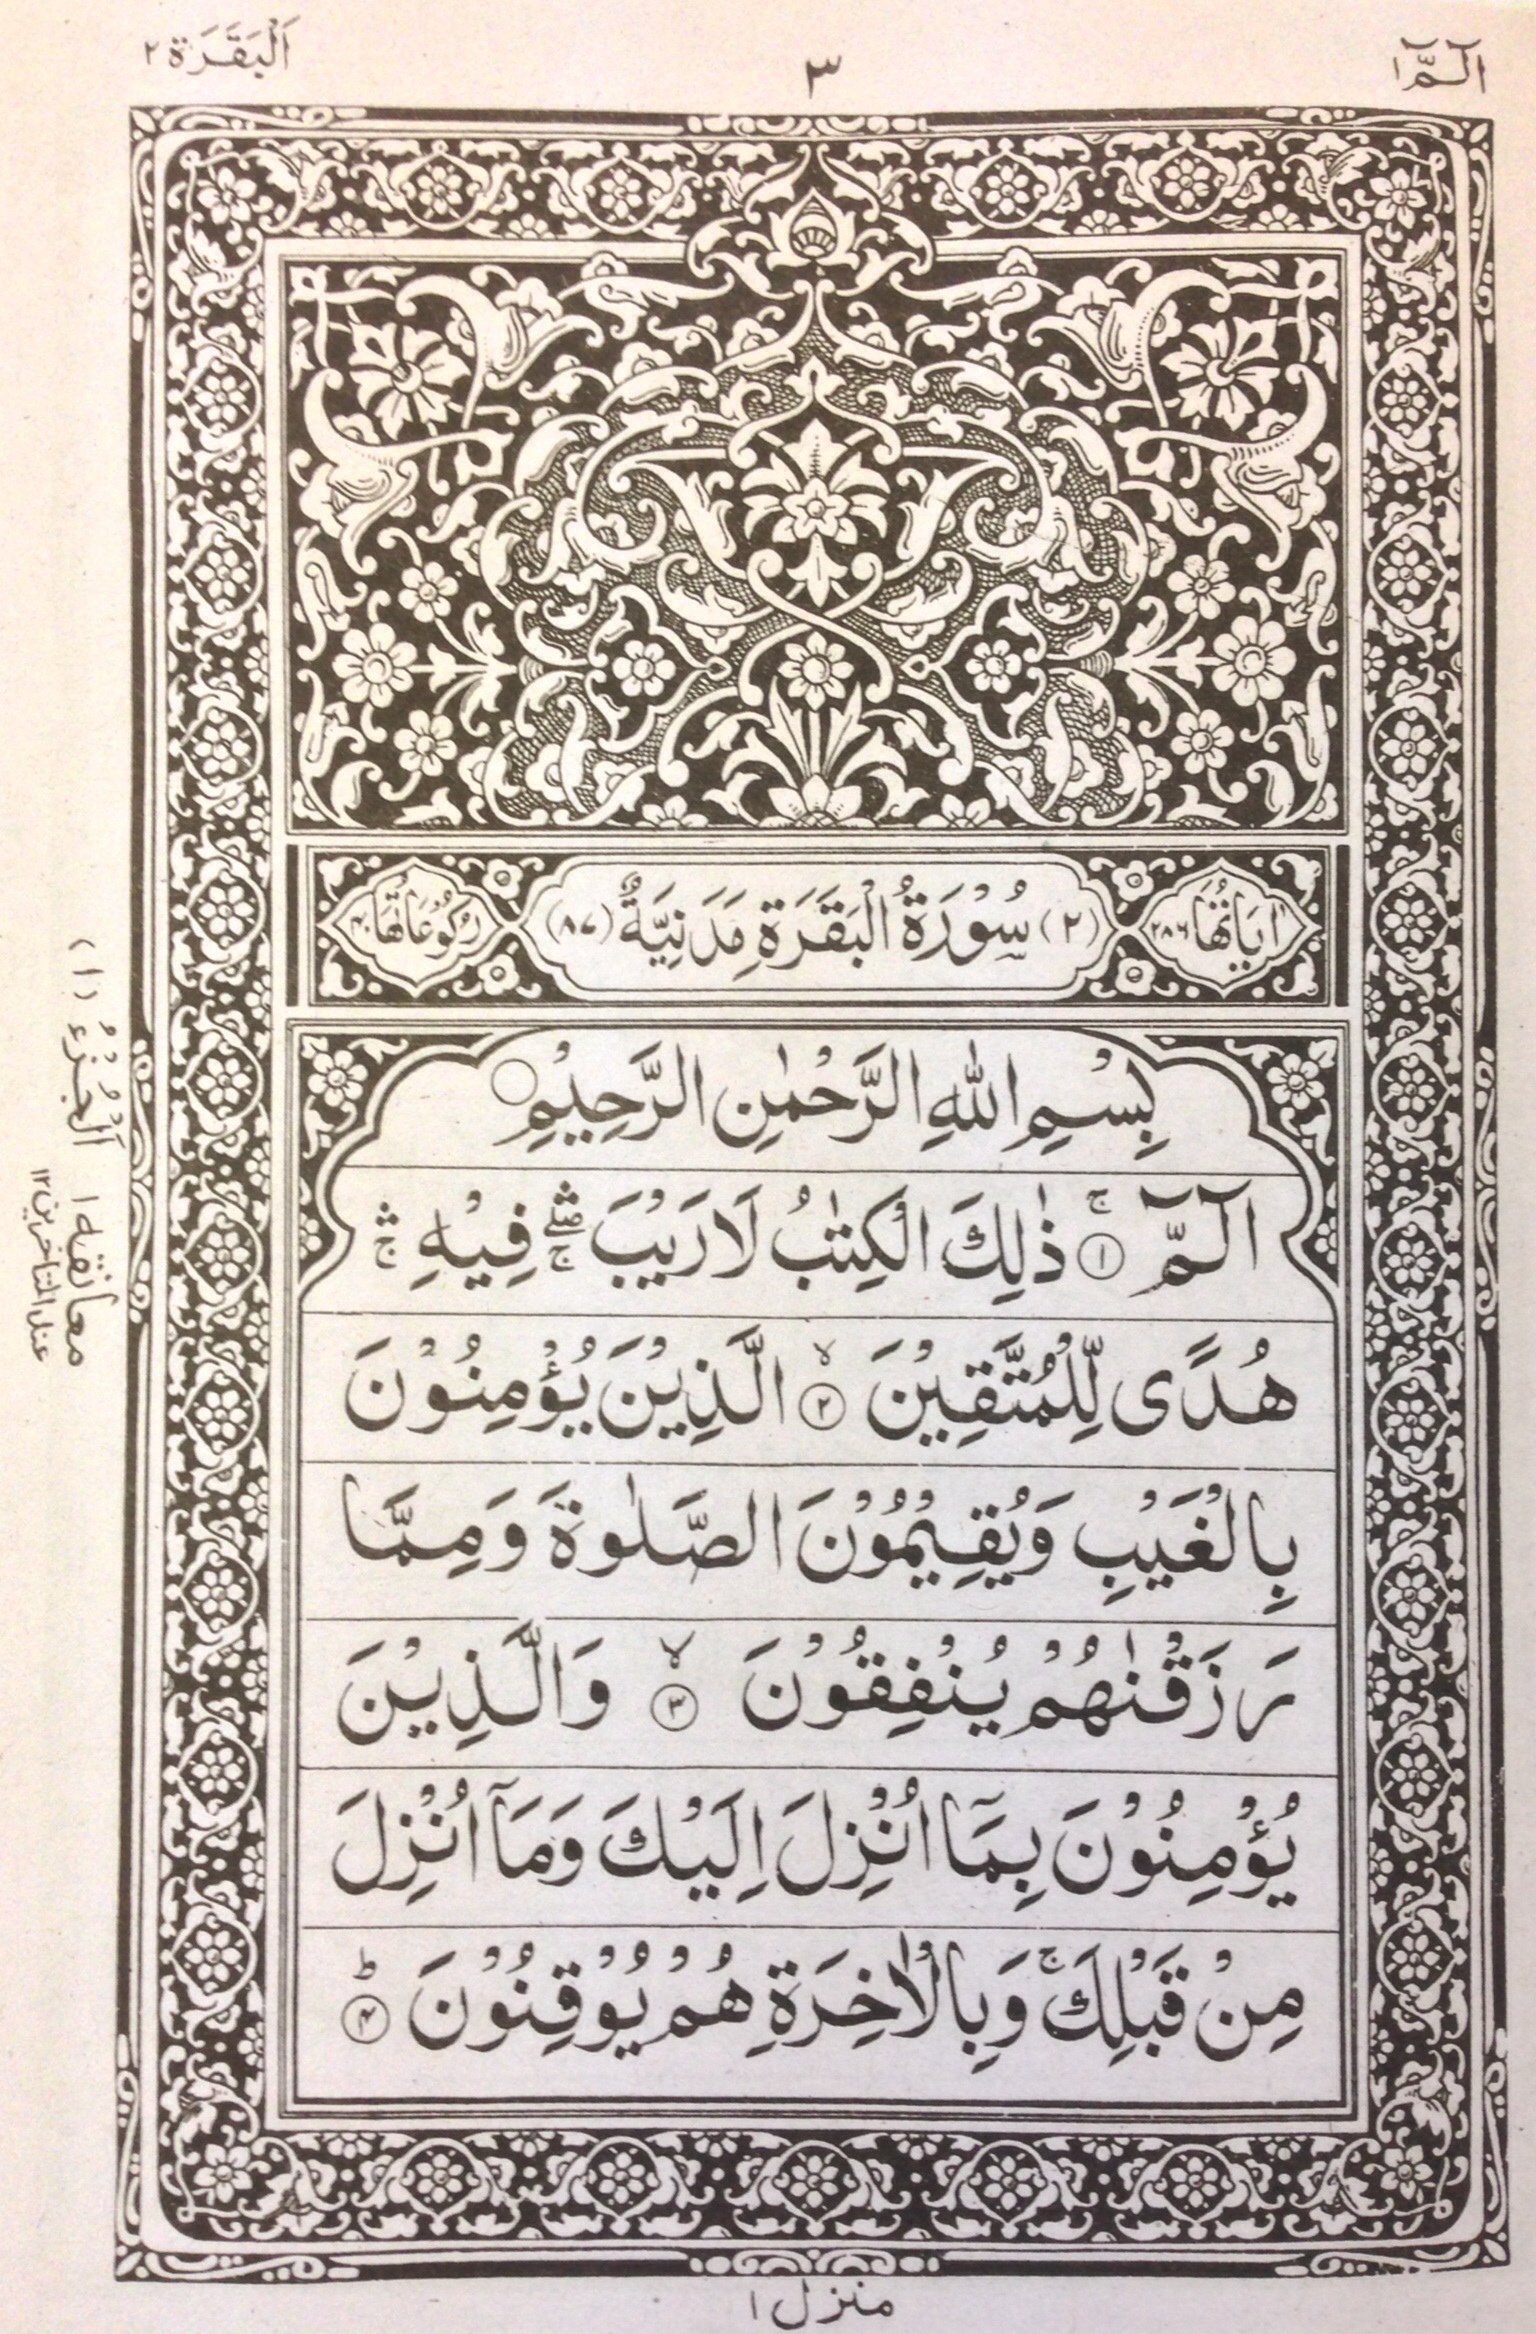 الٓمّٓ ١
٣
اَلْبَقَرَة ٢
اٰيَاتُهَا ٢٨٦
(٢) سُوْرَةُ الْبَقَرَةِ مَدَنِيَّةٌ (٨٧)
رُكُوْعَاتُهَا ٤٠
بِسْمِ اللّٰهِ الرَّحْمٰنِ الرَّحِيْمِ ۝
الٓمّٓ ۚ ﴿١﴾ ذٰلِكَ الْكِتٰبُ لَا رَيْبَ ۛۖۚ فِيْهِ ۛۚ
هُدًى لِّلْمُتَّقِيْنَ ۙ ﴿٢﴾ الَّذِيْنَ يُؤْمِنُوْنَ
بِالْغَيْبِ وَيُقِيْمُوْنَ الصَّلٰوةَ وَمِمَّا
رَزَقْنٰهُمْ يُنْفِقُوْنَ ۙ ﴿٣﴾ وَالَّذِيْنَ
يُؤْمِنُوْنَ بِمَآ اُنْزِلَ اِلَيْكَ وَمَآ اُنْزِلَ
مِنْ قَبْلِكَ ۚ وَبِالْاٰخِرَةِ هُمْ يُوْقِنُوْنَ ؕ ﴿٤﴾
اَلْجُزْءُ (١)
معانقه ١
عند المتاخرين ١٢
منزل ١